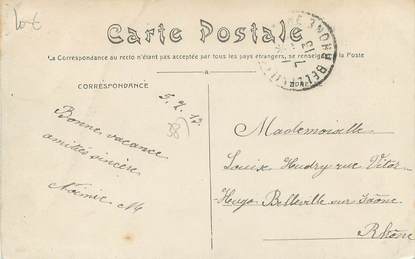 Carte Postale
La Correspondance au recto n'étant pas acceptée par tous les pays étrangers, se renseigner à la Poste
CORRESPONDANCE
Bonne vacance
amitiés sincère
Noémie M
Mademoiselle
Louise Hudry rue Victor
Hugo Belleville sur Saône
Rhône